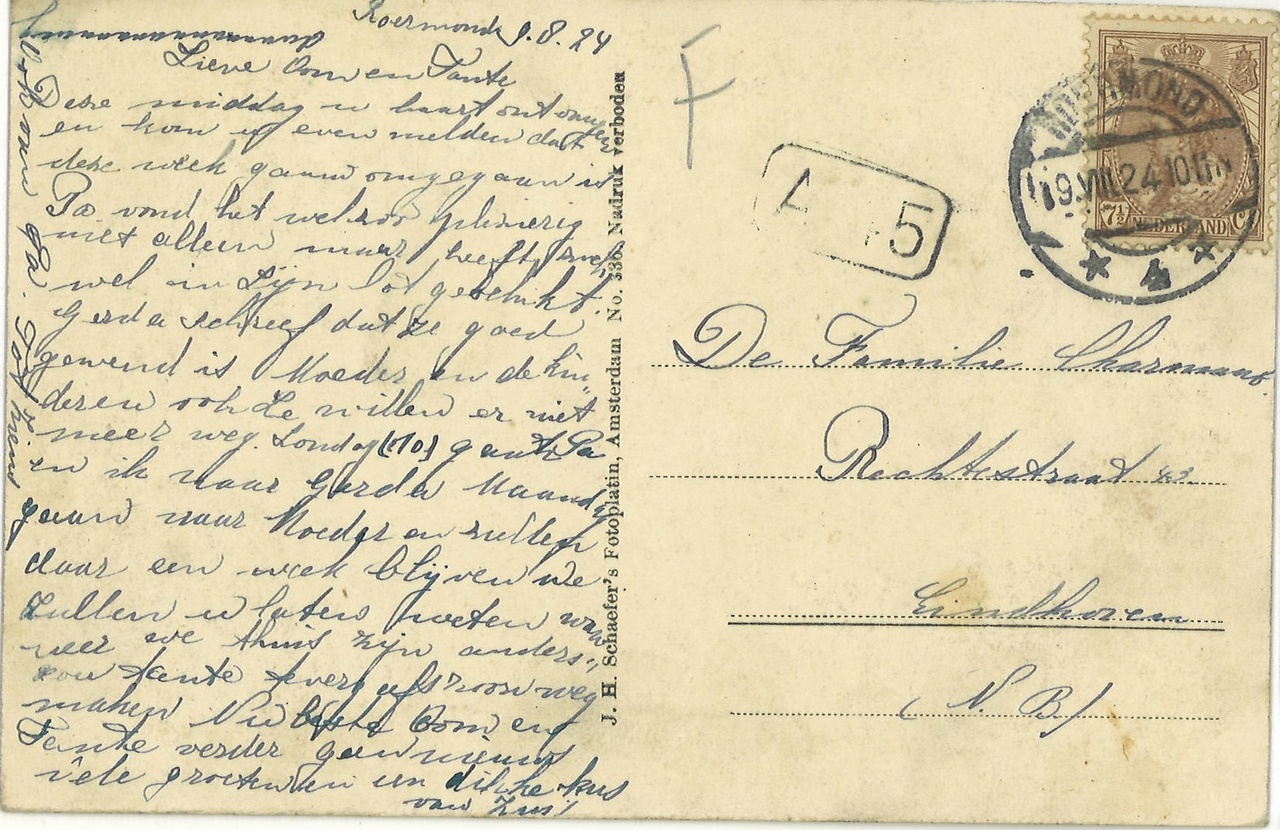 Roermond 9.8.24
Lieve Oom en Tante
Deze middag u kaart ontvangen
en kom u even melden dat
deze week gauw omgegaan is
Pa vond het wel zoo plezierig
niet alleen maar heeft zich
wel in zijn lot geschikt.
Gerda schreef dat ze goed
gewend is Moeder en de kin"
deren ook Ze willen er niet
meer weg. Zondag (10) gaat Pa
en ik naar Gerda Maandag
gaan naar Moeder en zullen
daar een week blijven We
Zullen u laten weten wan
neer we thuis zijn anders"
zou tante tevergeefs voor weg
maken Nu beste Oom en
Tante verder geen nieuws
vele groeten en een dikke kus
van Zus!
Ook van Pa.
J. H. Schaefer's Fotoplatin, Amsterdam No. 336. Nadruk verboden
F
A 5
ROERMOND
9.VIII.24 10-11 N
4
7½ NEDERLAND Ct
De Familie Charmans
Rechtestraat 43.
Eindhoven
(N. B.)